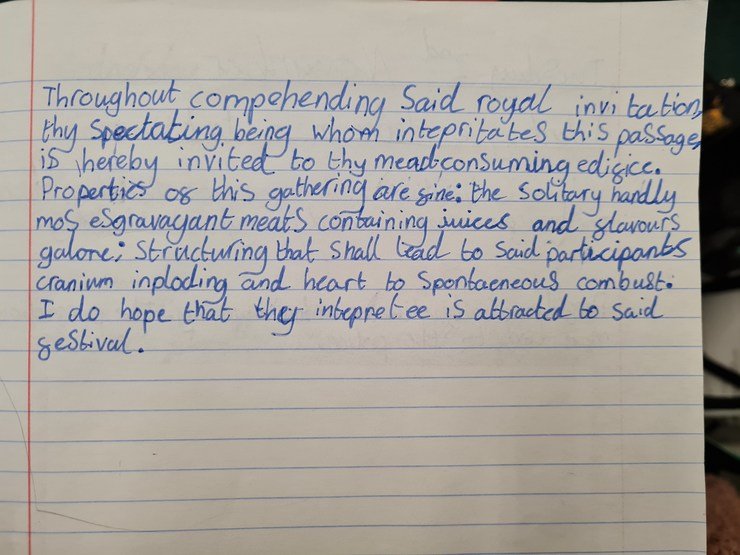 Throughout compehending said royal invitation,
thy spectating being whom intepritates this passage,
is hereby invited to thy mead consuming edifice.
Properties of this gathering are fine: the solitary handly
mos esgravagant meats containing juices and flavours
galore; structuring that shall lead to said participants
cranium inploding and heart to spontaeneous combust.
I do hope that they intepretee is attracted to said
festival.